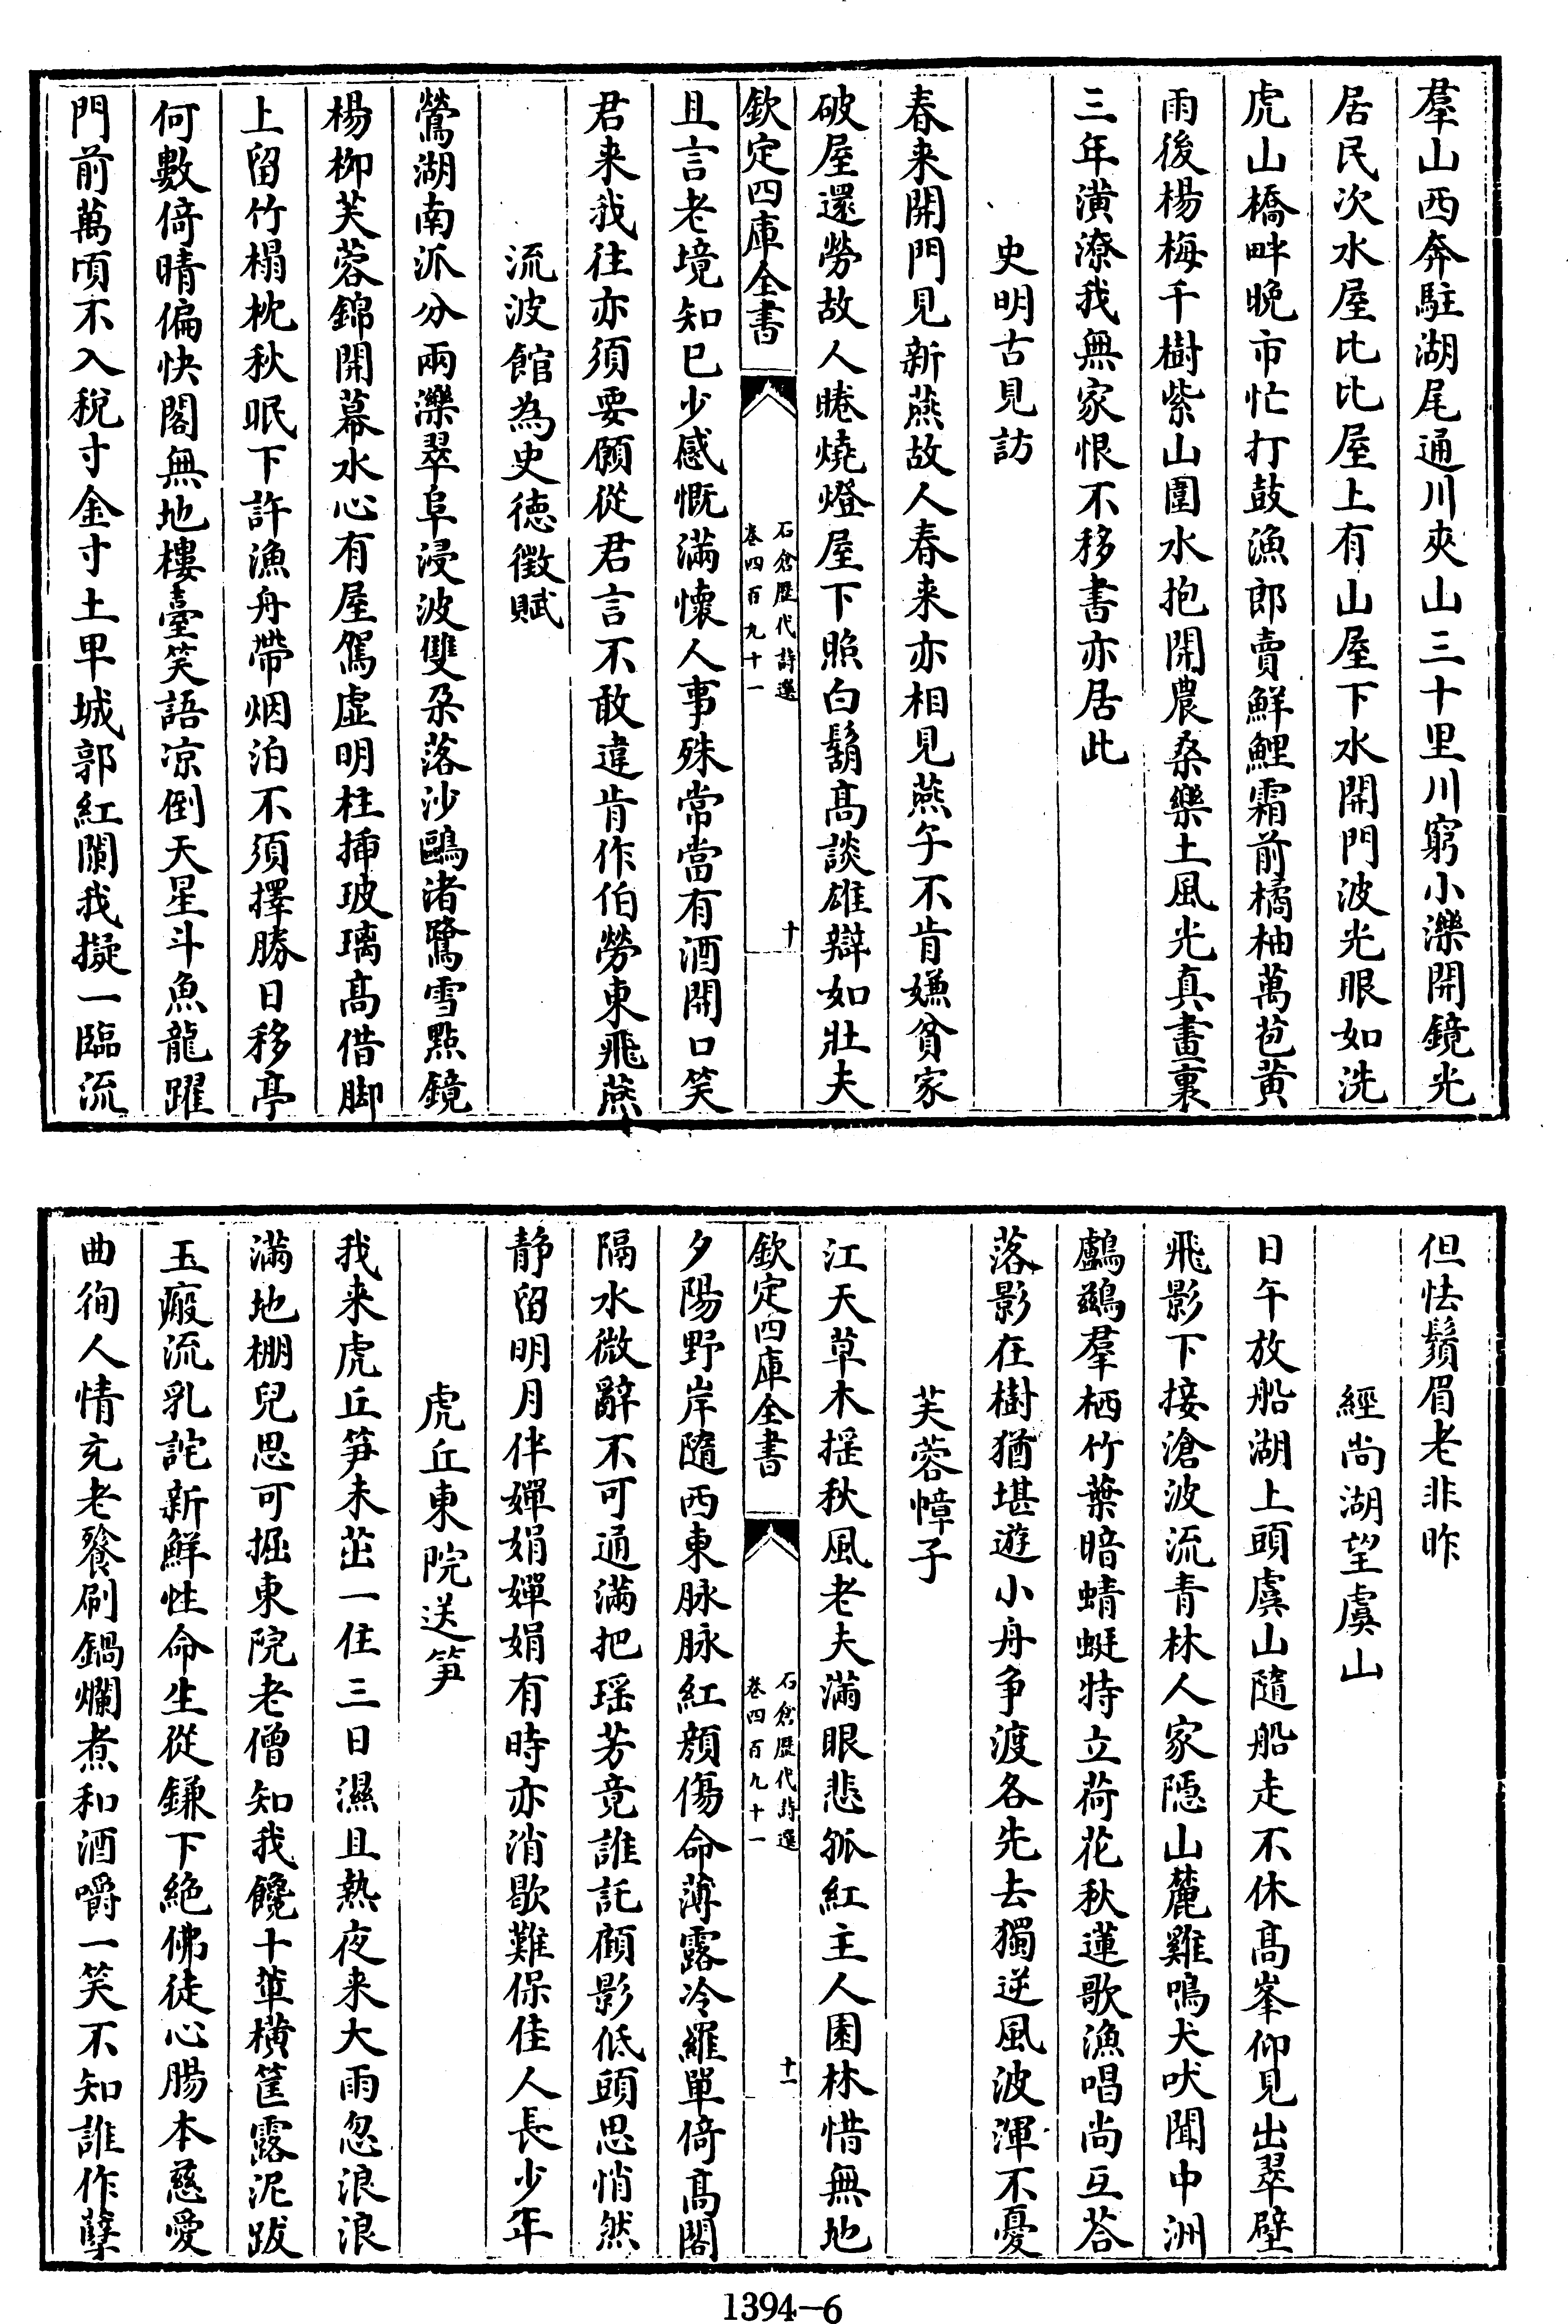 羣山西奔駐湖尾通川夾山三十里川窮小濼開鏡光
居民次水屋比比屋上有山屋下水開門波光眼如洗
虎山橋畔晚市忙打鼓漁郎賣鮮鯉霜前橘柚萬苞黄
雨後楊梅千樹紫山圍水抱開農桑樂土風光真畫裏
三年潢潦我無家恨不移書亦居此
史明古見訪
春来開門見新燕故人春来亦相見燕乍不肯嫌貧家
破屋還勞故人睠燒燈屋下照白鬍高談雄辯如壯夫
欽定四庫全書
石倉歴代詩選
卷四百九十一
十
且言老境知已少感慨滿懷人事殊常當有酒開口笑
君来我往亦須要願從君言不敢違肯作伯勞東飛燕
流波館為史徳徵賦
鶯湖南派分兩濼翠阜浸波雙朶落沙鷗渚鷺雪點鏡
楊栁芙蓉錦開幕水心有屋駕虚明柱揷玻璃高借脚
上留竹榻枕秋眠下許漁舟帶烟泊不須擇勝日移亭
何數倚晴偏快閣無地樓臺笑語凉倒天星斗魚龍躍
門前萬頃不入稅寸金寸土早城郭紅闌我擬一臨流
但怯鬚眉老非昨
經尚湖望虞山
日午放船湖上頭虞山隨船走不休高峯仰見出翠壁
飛影下接滄波流青林人家隱山麓雞鳴犬吠聞中洲
鸕鷀羣栖竹葉暗蜻蜓特立荷花秋蓮歌漁唱尚互荅
落影在樹猶堪遊小舟争渡各先去獨逆風波渾不憂
芙蓉幛子
江天草木揺秋風老夫滿眼悲孤紅主人園林惜無地
欽定四庫全書
石倉歴代詩選
卷四百九十一
十一
夕陽野岸隨西東脉脉紅顔傷命薄露冷羅單倚高閣
隔水微辭不可通滿把瑶芳竟誰託顧影低頭思悄然
静留明月伴嬋娟嬋娟有時亦消歇難保佳人長少年
虎丘東院送笋
我来虎丘笋未茁一住三日濕且熱夜来大雨忽浪浪
滿地棚兒思可掘東院老僧知我饞十萆横筐露泥跋
玉瘢流乳詫新鮮性命生從鎌下絶佛徒心腸本慈愛
曲徇人情充老餮刷鍋爛煮和酒嚼一笑不知誰作孽
1394—6